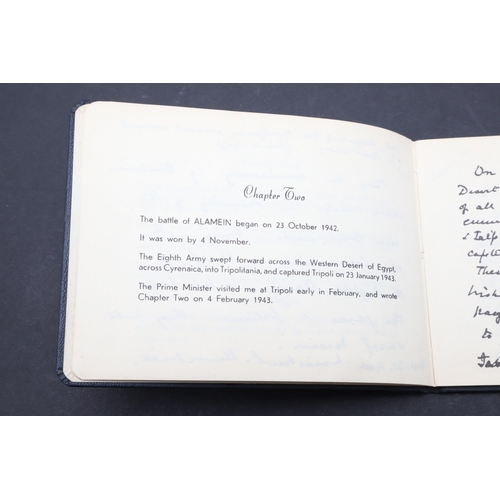 Chapter Two
The battle of ALAMEIN began on 23 October 1942.
It was won by 4 November.
The Eighth Army swept forward across the Western Desert of Egypt,
across Cyrenaica, into Tripolitania, and captured Tripoli on 23 January 1943.
The Prime Minister visited me at Tripoli early in February, and wrote
Chapter Two on 4 February 1943.
On
Desert
of all
to